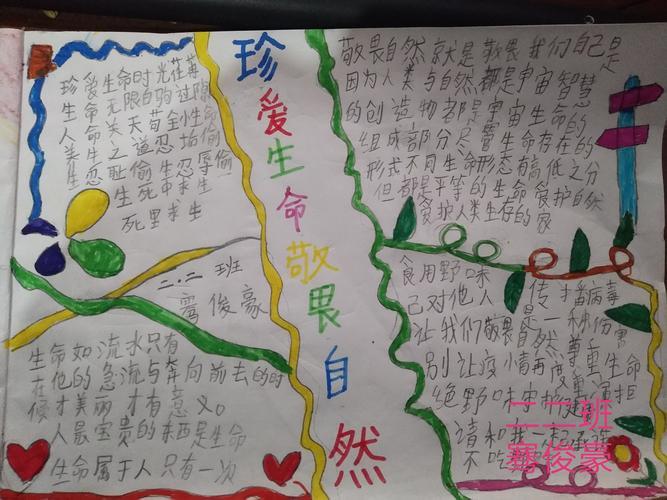 珍爱生命敬畏自然
珍爱生命时光荏苒
生命无限白驹过隙
人命关天苟全性命
死里求生
二.二班
俊豪
生命如流水只有
在他的急流与奔向前去的时
候才美丽才有意义。
人最宝贵的东西是生命
生命属于人只有一次
敬畏自然就是敬畏我们自己是
因为人类与自然都是宇宙智慧
的创造物都是宇宙生命的
组成部分尽管生命存在的
形式不同生命形态有高低之分
但都是平等的生命爱护自然
爱护人类生存的家
食用野味传播病毒
己对他人是一种伤害
让我们敬畏自然尊重生命
别让疫情再次重演拒
绝野味守护
请和我一起承诺
不吃
二二班
骞俊豪